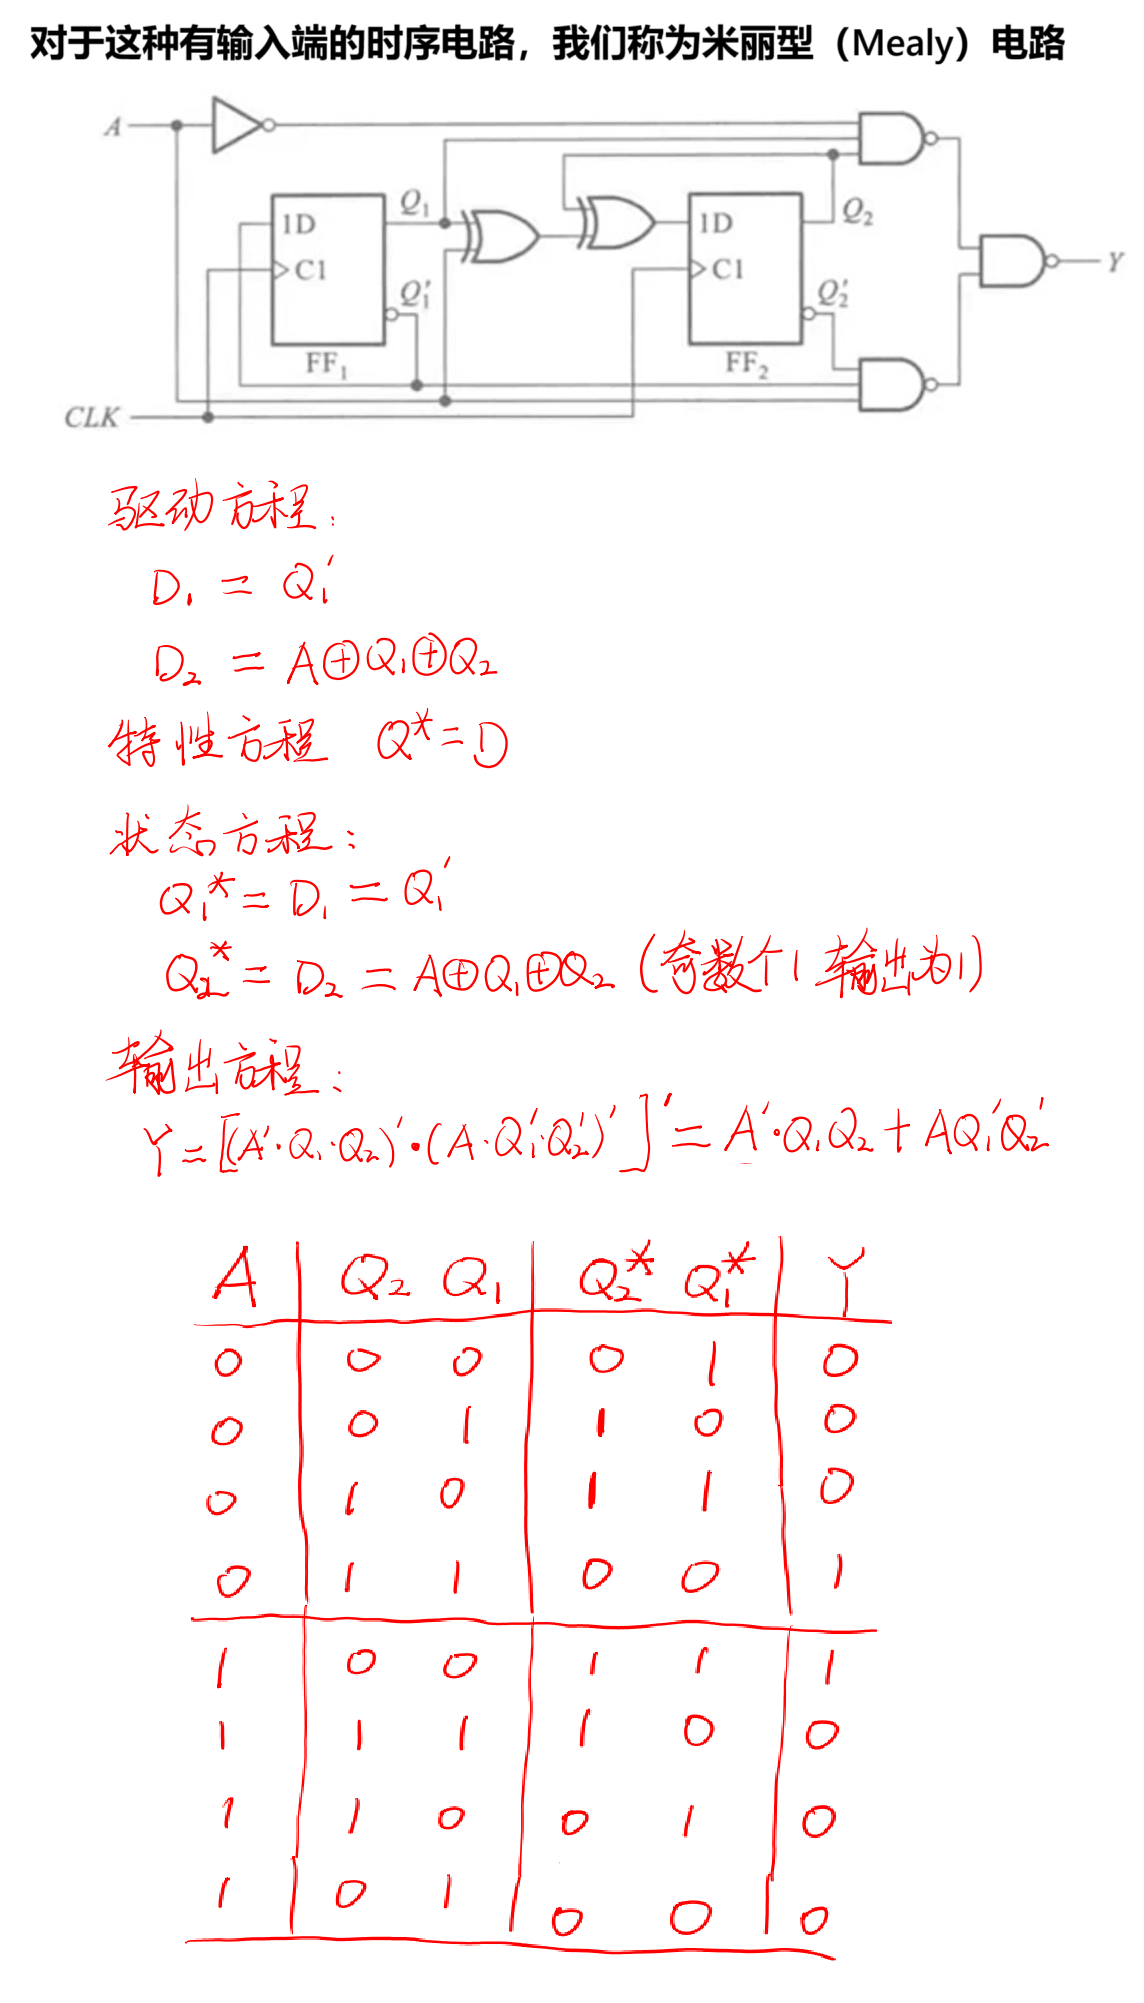 对于这种有输入端的时序电路，我们称为米丽型（Mealy）电路
A
Q₁ Q₂
1D 1D
C1 C1 Y
Q₁′ Q₂′
FF₁ FF₂
CLK
驱动方程：
D₁ = Q₁′
D₂ = A⊕Q₁⊕Q₂
特性方程 Q*=D
状态方程：
Q₁* = D₁ = Q₁′
Q₂* = D₂ = A⊕Q₁⊕Q₂（奇数个1 输出为1）
输出方程：
Y=[(A′·Q₁·Q₂)′·(A·Q₁′·Q₂′)′]′= A′·Q₁Q₂ + AQ₁′Q₂′
A Q₂ Q₁ Q₂* Q₁* Y
0 0 0 0 1 0
0 0 1 1 0 0
0 1 0 1 1 0
0 1 1 0 0 1
1 0 0 1 1 1
1 1 1 1 0 0
1 1 0 0 1 0
1 0 1 0 0 0